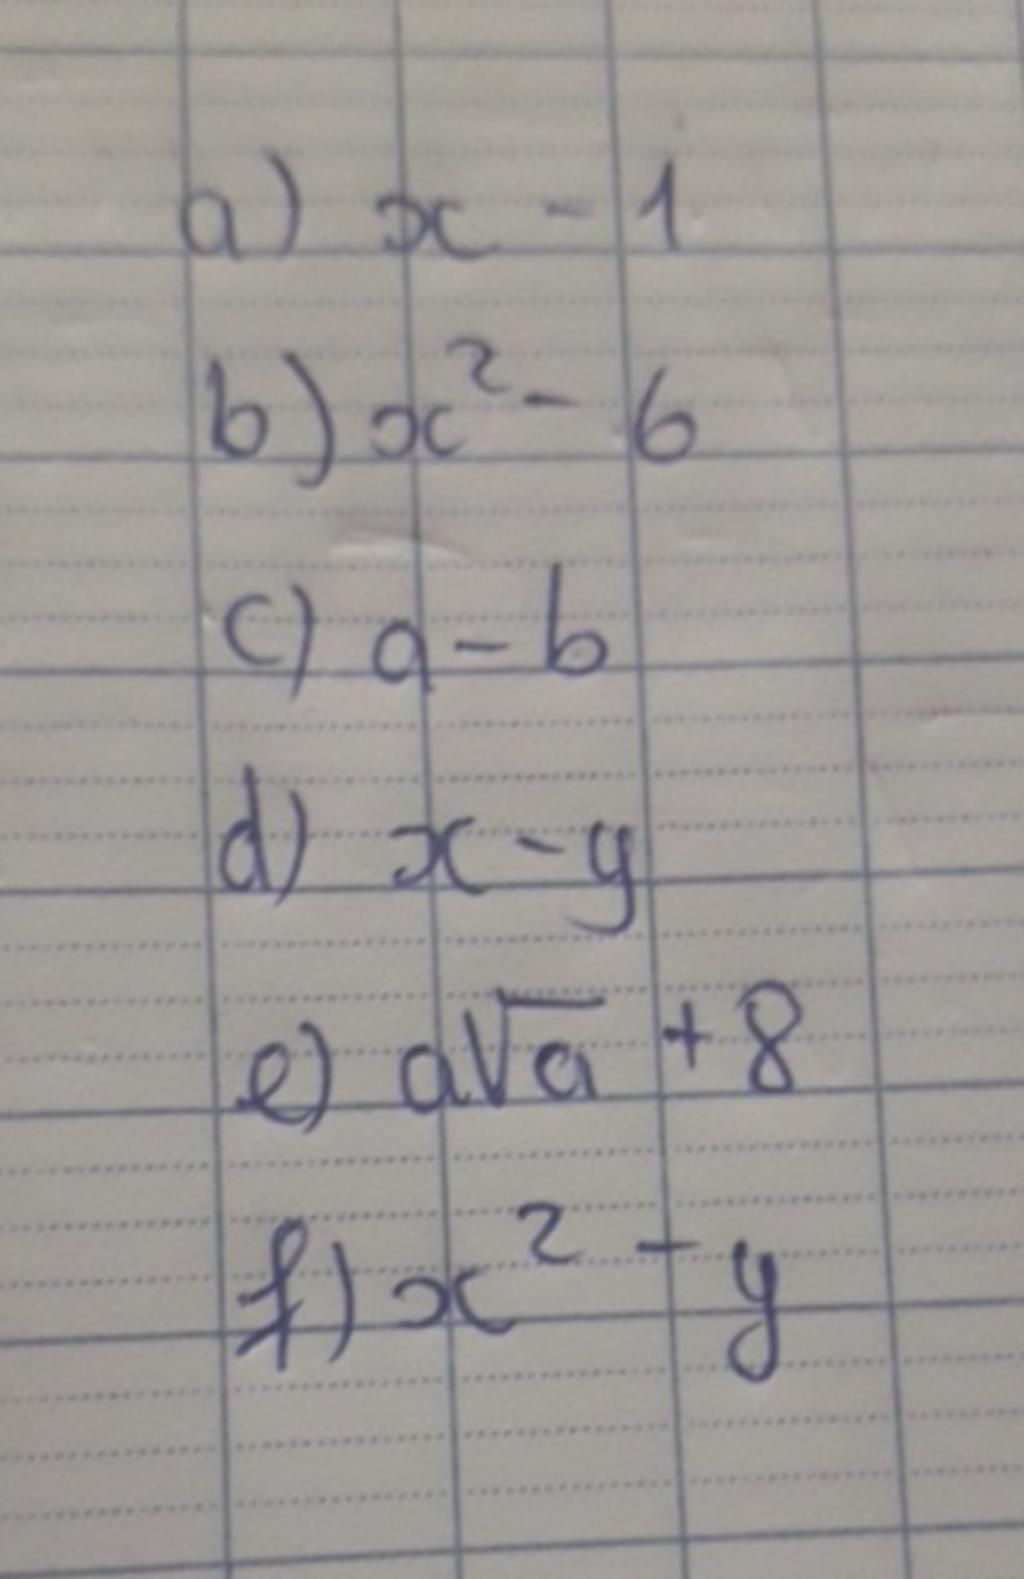 a) x - 1
b) x² - 6
c) a - b
d) x - y
e) a√a + 8
f) x² - y